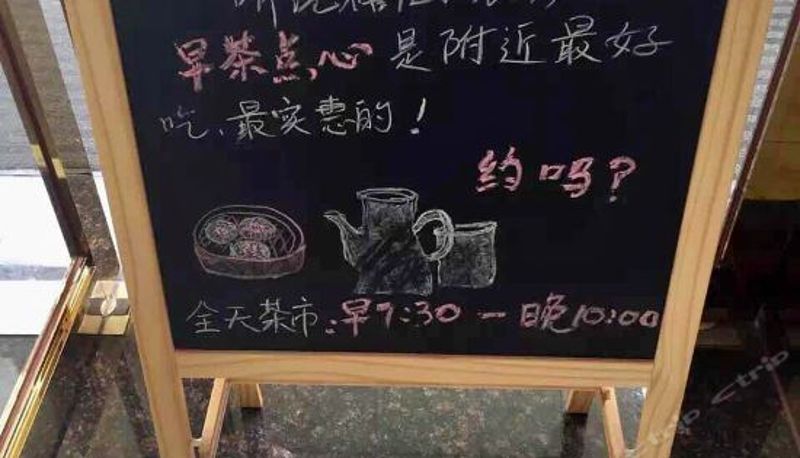 早茶点心是附近最好
吃、最实惠的！
约吗？
全天茶市：早7:30 — 晚10:00
Ctrip Ctrip